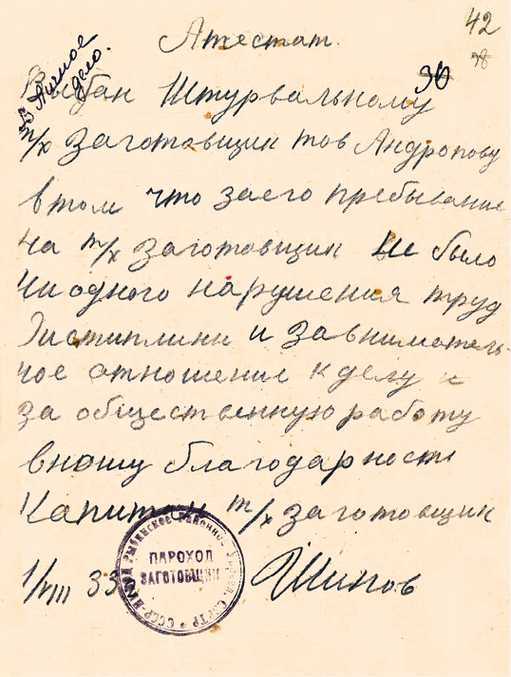 42
38
Аттестат.
в Личное
дело.
30
Выдан Штурвальному
т/х Заготовщик тов Андропову
в том что заего пребывание
на т/х Заготовщик не было
ниодного нарушения труд
дистиплини и завниматель-
ное отношение к делу и
за общественную работу
вношу благодарность
Капитан т/х Заготовщик
1/VIII 33
Шипов
ПАРОХОД
ЗАГОТОВЩИК